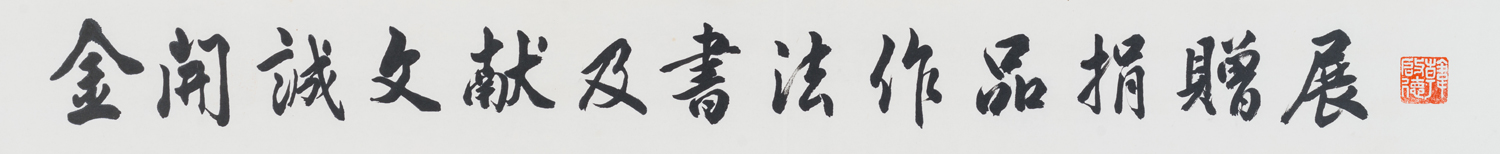 金開誠文献及書法作品捐贈展